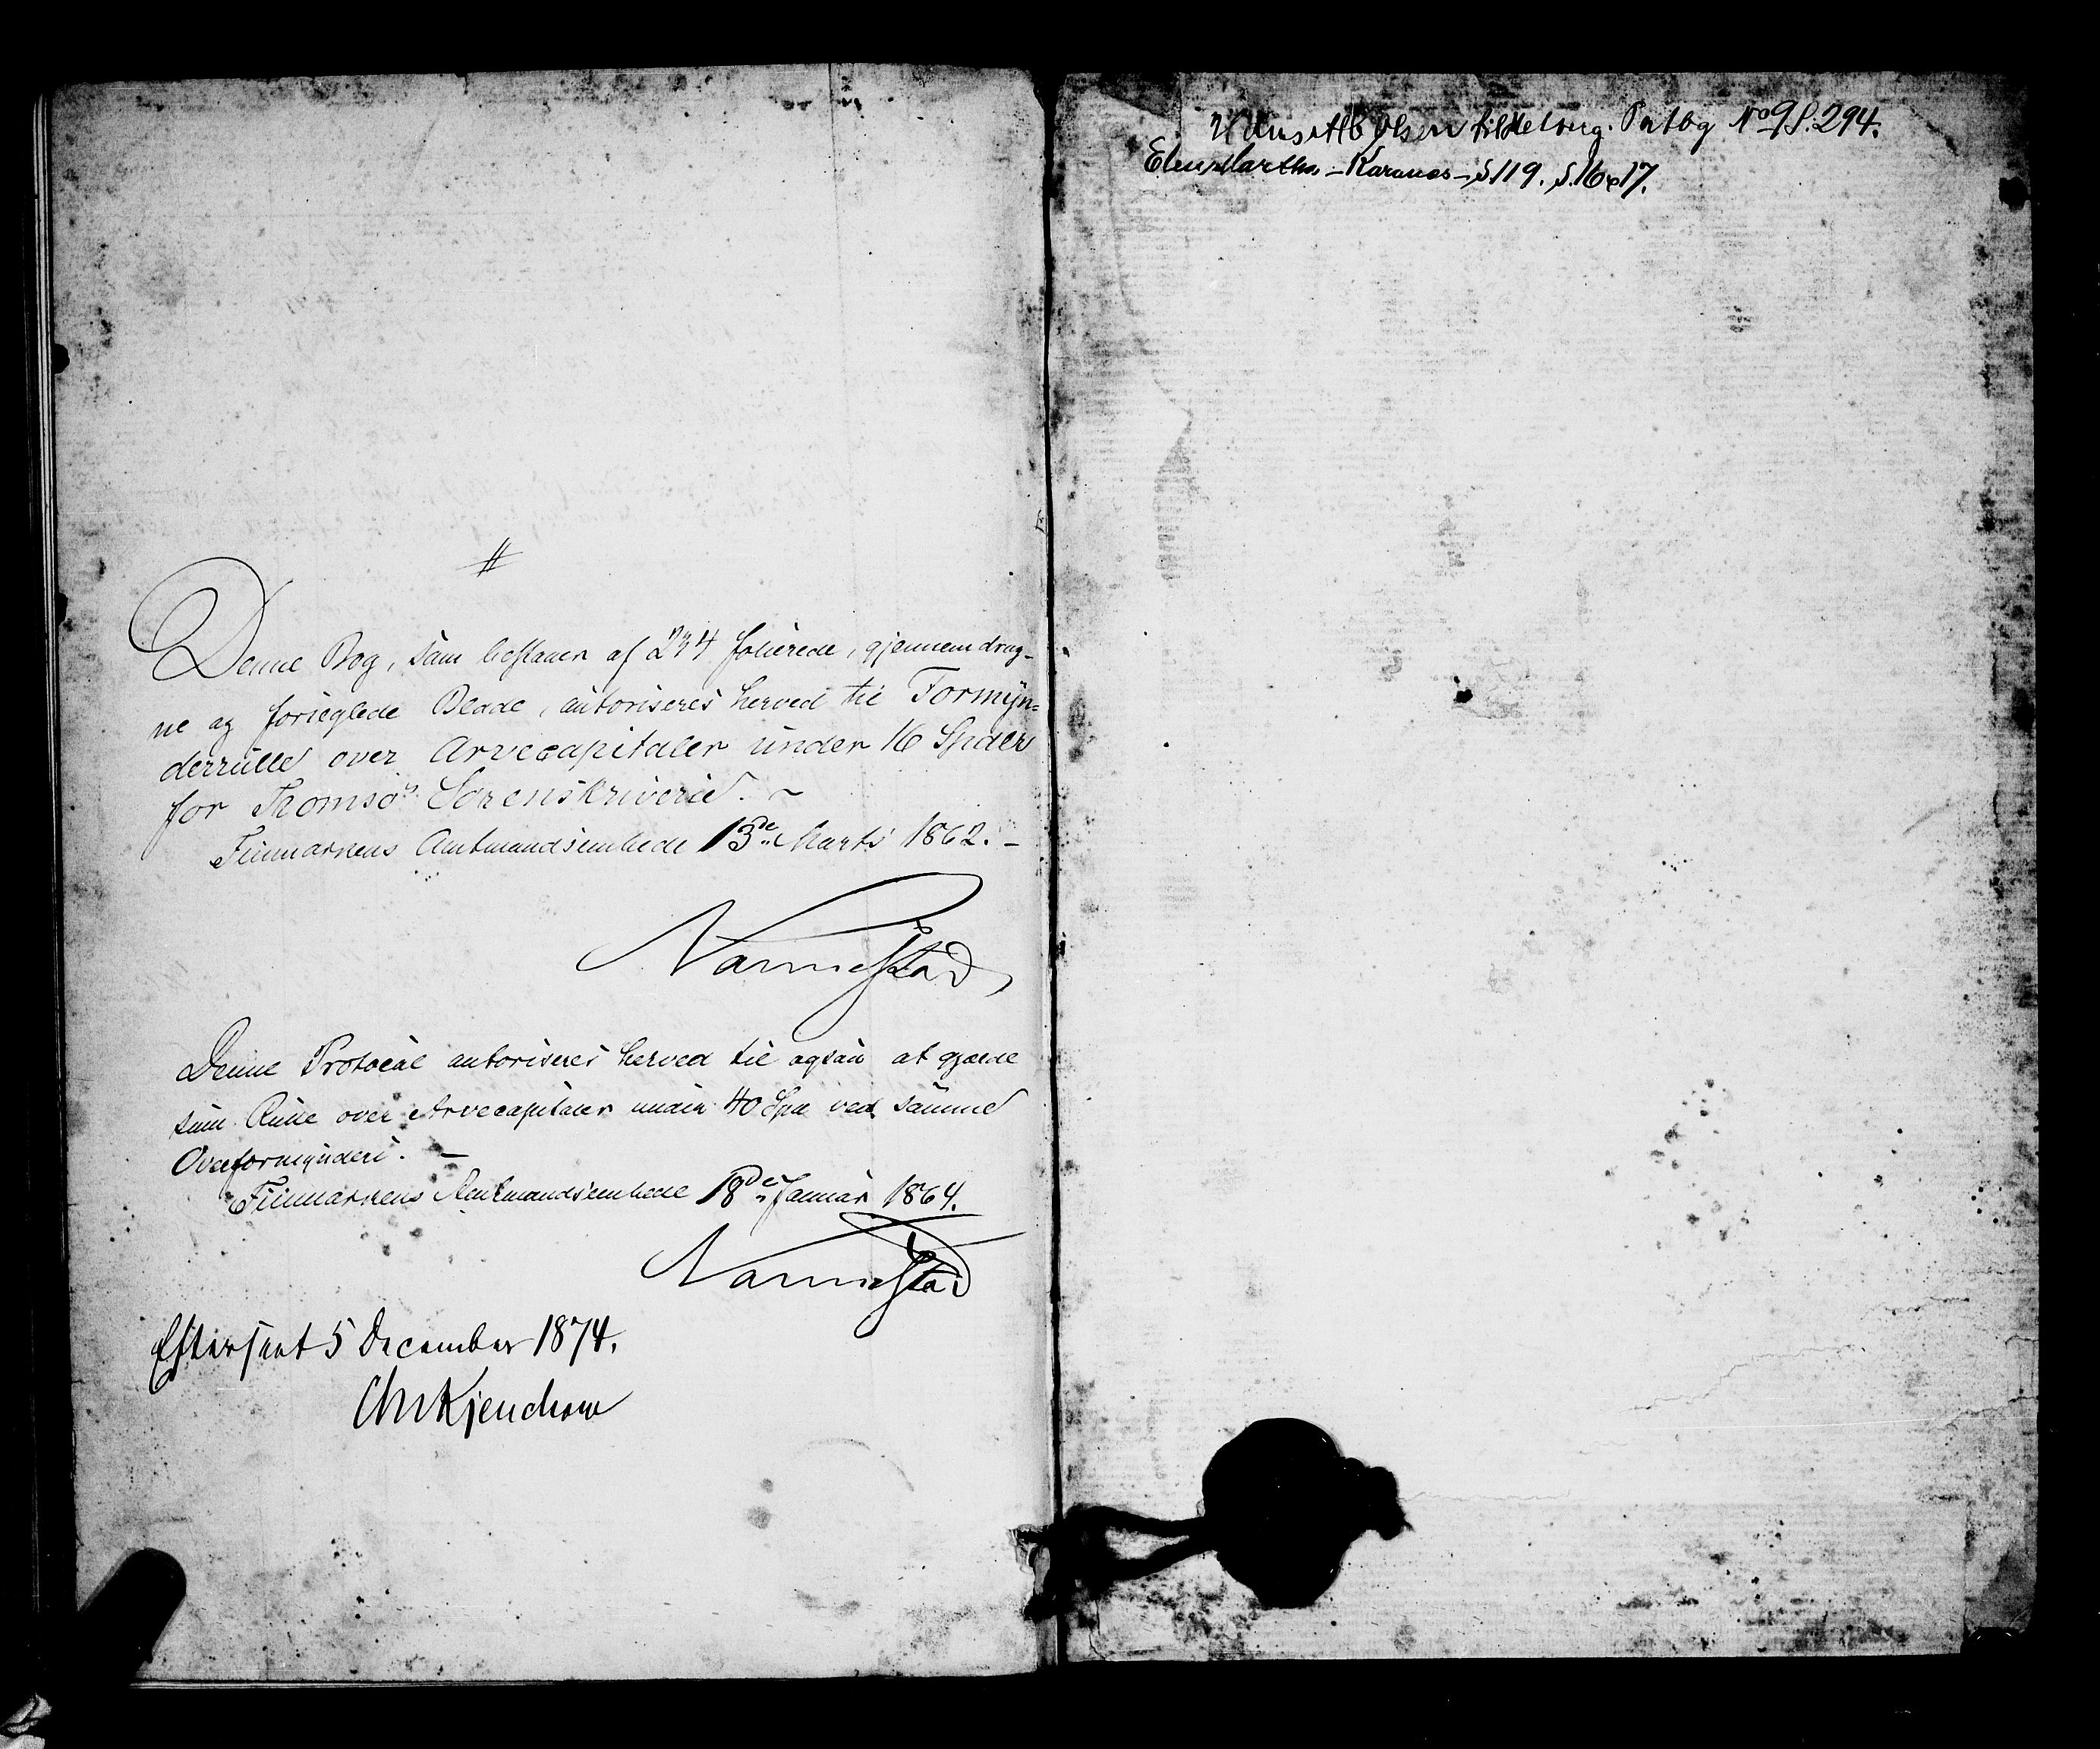 #
Denne Bog, som bestaaer af 234 folierede, gjennemdrag-
ne og forseglede Blade, autoriseres herved til Formÿn=
derrulle over Arvecapitaler under 16 Spdlr
for Tromsø Sorenskriverie. ~
Finmarkens Amtmandsembede 13de Marts 1862. –
Nannestad
Denne Protocol autoriseres herved til ogsaa at gjælde
som Rulle over Arvecapitaler under 40 Spd ved samme
Overformynderi. –
Finmarkens Amtmandsembede 18de Januar 1864.
Nannestad
Efterseet 5 December 1874.
Kjerschow
Olsen No 9 S. 294.
Martha – Karanes – S 119. S. 16 o 17.